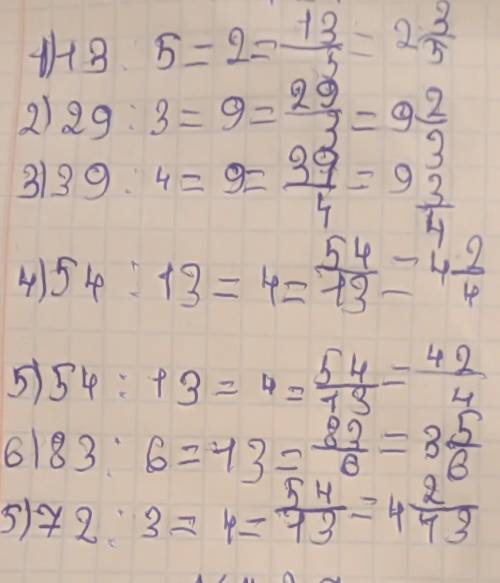 1) 13 : 5 = 2 = 13/5 = 2 3/5
2) 29 : 3 = 9 = 29/3 = 9 2/3
3) 39 : 4 = 9 = 39/4 = 9 3/4
4) 54 : 13 = 4 = 54/13 = 4 2/4
5) 54 : 13 = 4 = 54/13 = 42/4
6) 83 : 6 = 13 = 83/6 = 3 5/6
5) 72 : 3 = 4 = 54/13 = 4 2/13